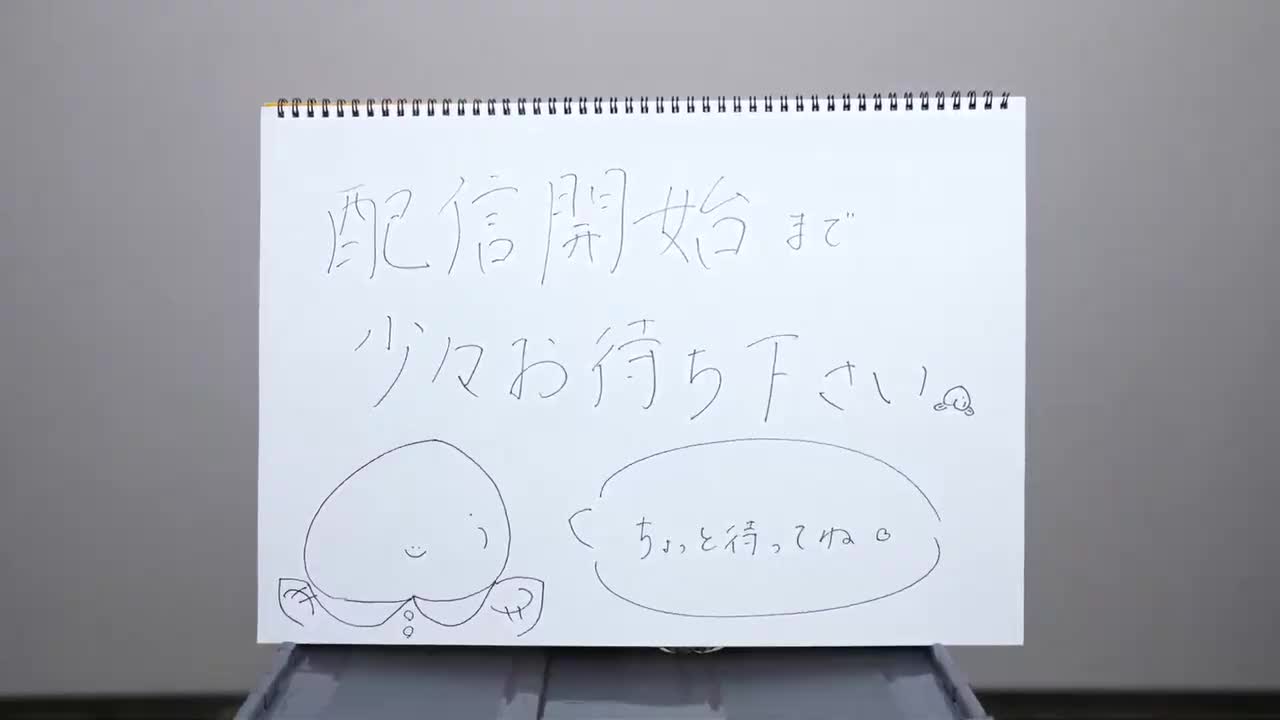 配信開始まで
少々お待ち下さい
ちょっと待ってね。